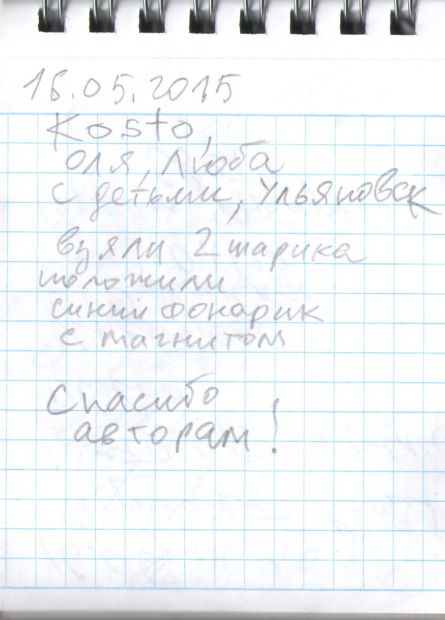 16.05.2015
Kosto,
Оля, Люба
с детьми, Ульяновск
взяли 2 шарика
положили
синий фонарик
с магнитом
Спасибо
авторам!